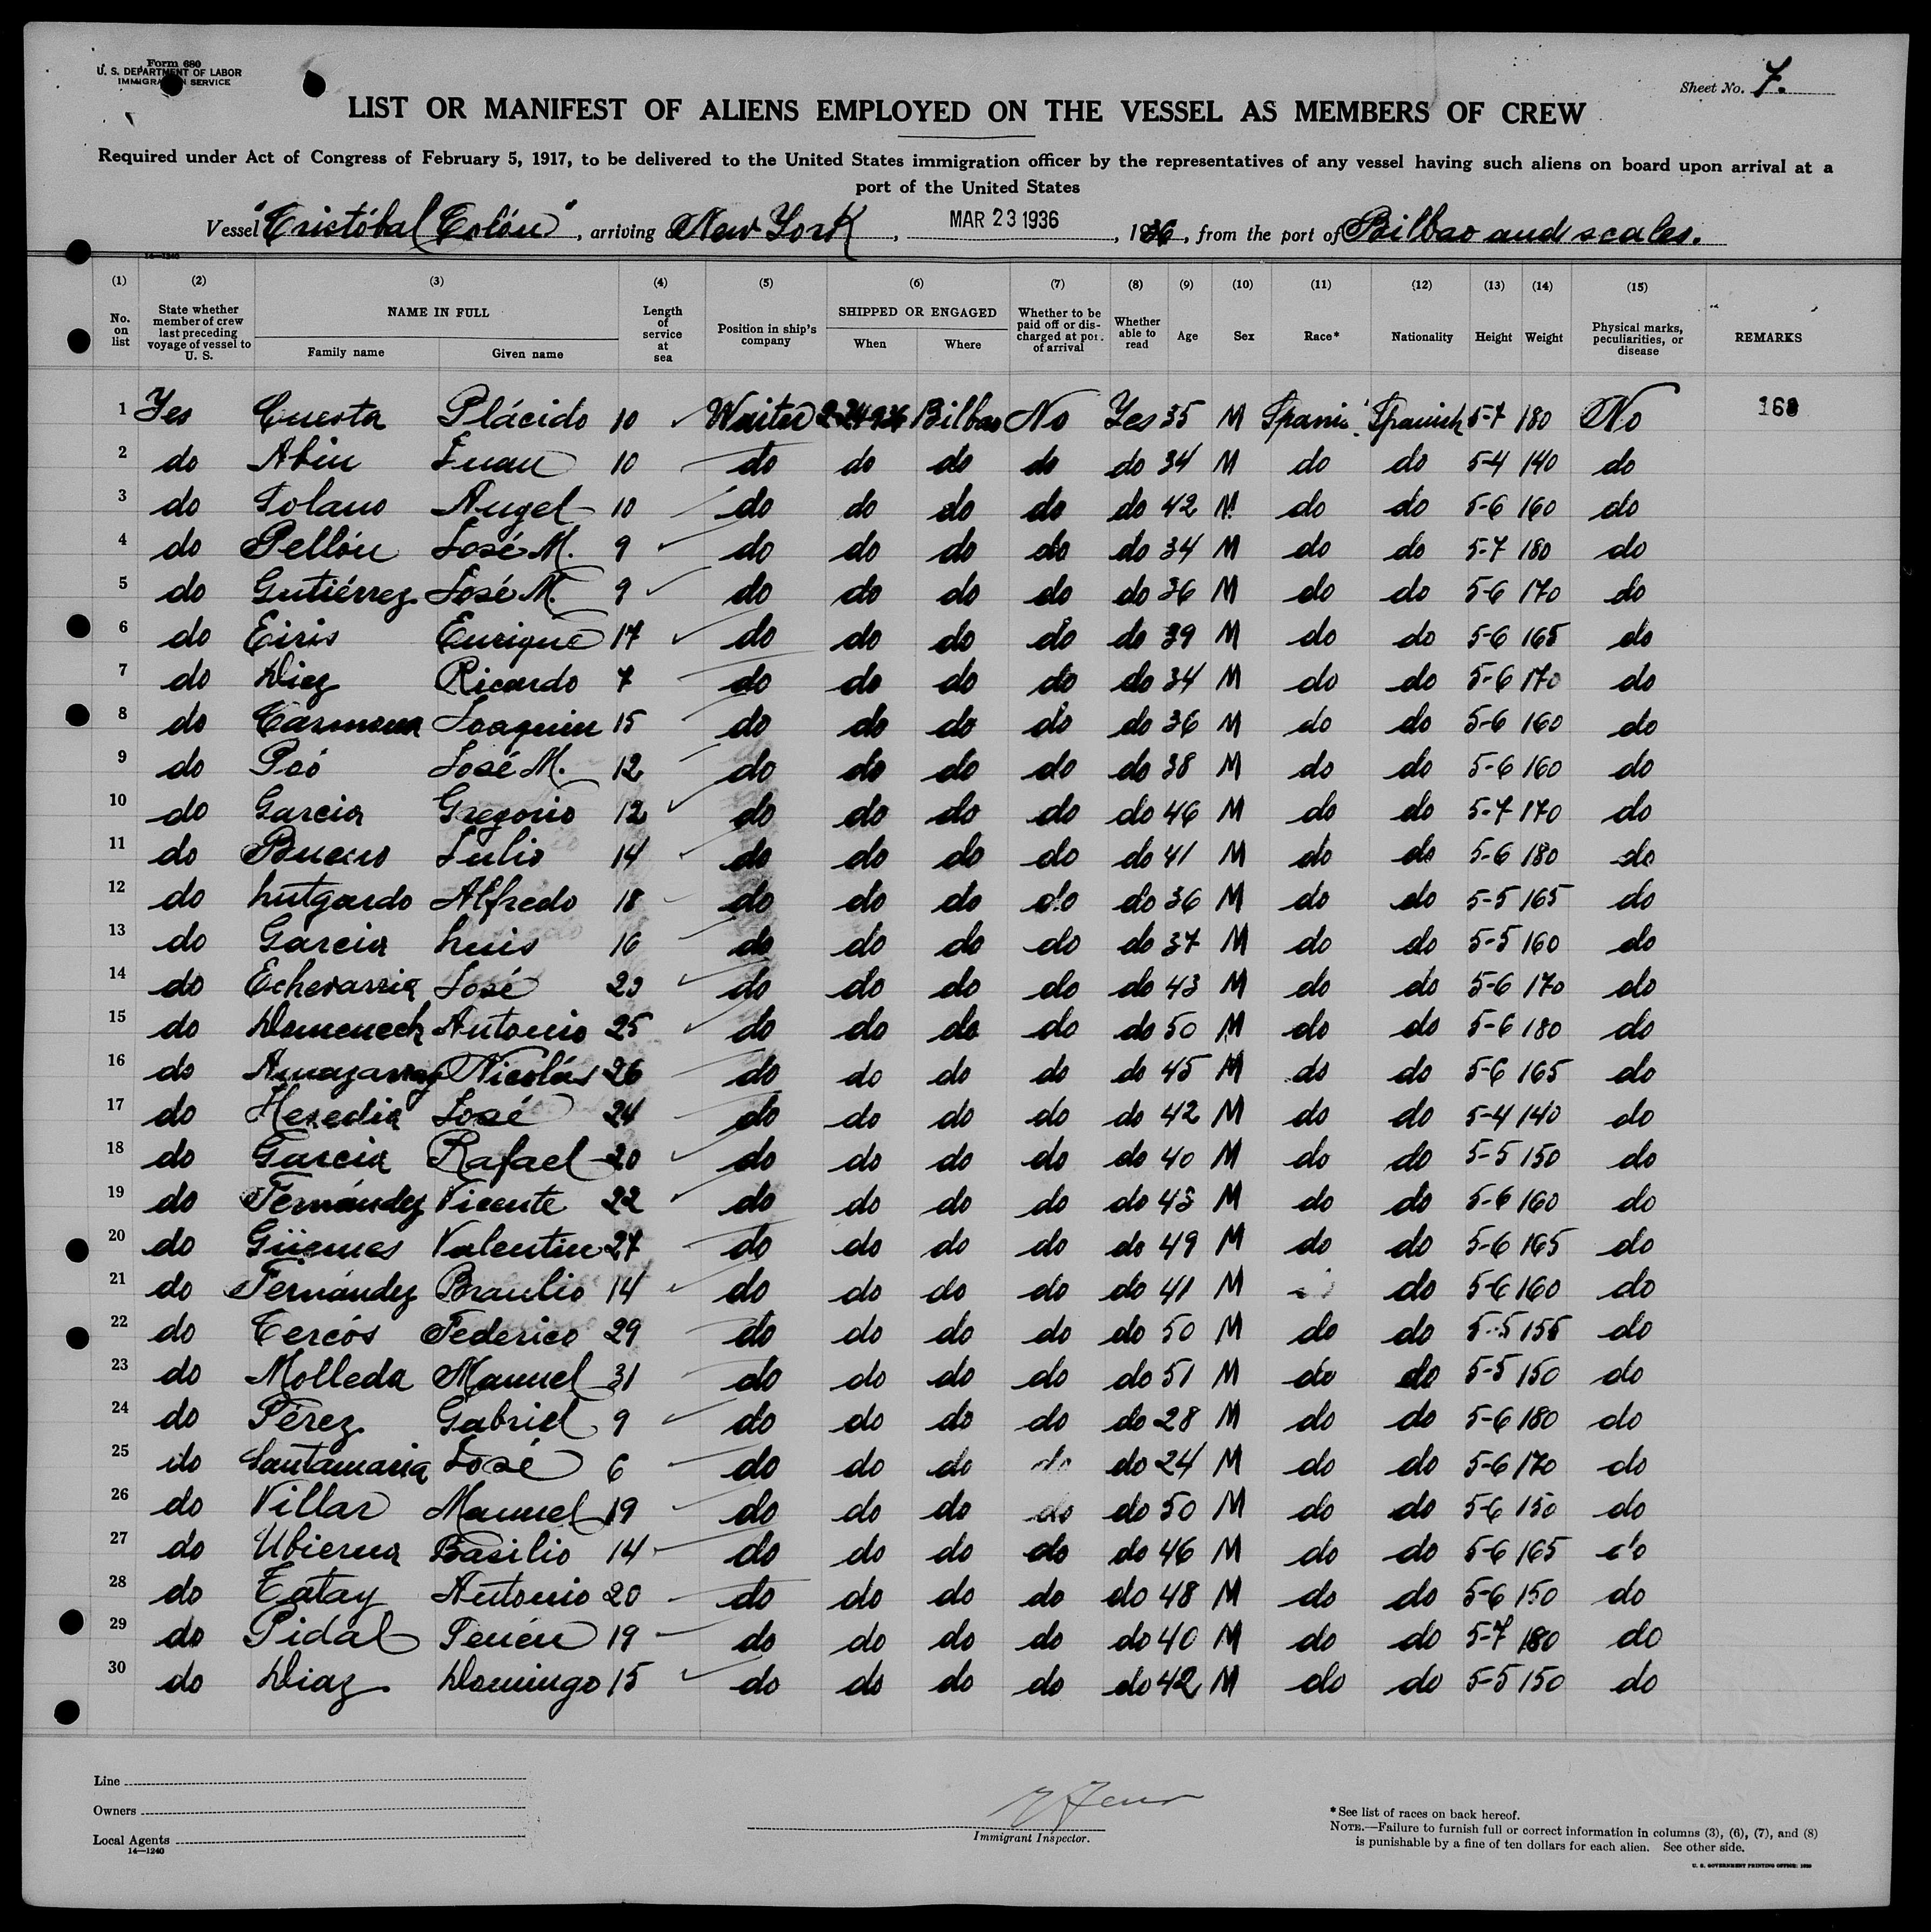 Form 680
U. S. DEPARTMENT OF LABOR
IMMIGRATION SERVICE
Sheet No. 7.
LIST OR MANIFEST OF ALIENS EMPLOYED ON THE VESSEL AS MEMBERS OF CREW
Required under Act of Congress of February 5, 1917, to be delivered to the United States immigration officer by the representatives of any vessel having such aliens on board upon arrival at a
port of the United States
Vessel "Cristóbal Colón", arriving New York, MAR 23 1936, 1936, from the port of Bilbao and scales.
14—1240
(1) (2) (3) (4) (5) (6) (7) (8) (9) (10) (11) (12) (13) (14) (15)
No. on list State whether member of crew last preceding voyage of vessel to U. S. NAME IN FULL Family name Given name Length of service at sea Position in ship's company SHIPPED OR ENGAGED When Where Whether to be paid off or discharged at port of arrival Whether able to read Age Sex Race* Nationality Height Weight Physical marks, peculiarities, or disease REMARKS
1 Yes Cuesta Plácido 10 Waiter Bilbao No Yes 35 M Spanis Spanish 5-7 180 No 168
2 do Abin Juan 10 do do do do do 34 M do do 5-4 140 do
3 do Solano Angel 10 do do do do do 42 M do do 5-6 160 do
4 do Pellón José M. 9 do do do do do 34 M do do 5-7 180 do
5 do Gutiérrez José M. 9 do do do do do 36 M do do 5-6 170 do
6 do Eiris Enrique 17 do do do do do 39 M do do 5-6 165 do
7 do Diez Ricardo 7 do do do do do 34 M do do 5-6 170 do
8 do Carmona Joaquin 15 do do do do do 36 M do do 5-6 160 do
9 do Poó José M. 12 do do do do do 38 M do do 5-6 160 do
10 do Garcia Gregorio 12 do do do do do 46 M do do 5-7 170 do
11 do Bueno Julio 14 do do do do do 41 M do do 5-6 180 do
12 do Lutgardo Alfredo 18 do do do do do 36 M do do 5-5 165 do
13 do Garcia Luis 16 do do do do do 37 M do do 5-5 160 do
14 do Echevarria José 23 do do do do do 43 M do do 5-6 170 do
15 do Domenech Antonio 25 do do do do do 50 M do do 5-6 180 do
16 do Nicolás 26 do do do do do 45 M do do 5-6 165 do
17 do Heredia José 24 do do do do do 42 M do do 5-4 140 do
18 do Garcia Rafael 20 do do do do do 40 M do do 5-5 150 do
19 do Fernández Vicente 22 do do do do do 43 M do do 5-6 160 do
20 do Güemes Valentin 27 do do do do do 49 M do do 5-6 165 do
21 do Fernández Braulio 14 do do do do do 41 M do 5-6 160 do
22 do Cercós Federico 29 do do do do do 50 M do do 5-5 155 do
23 do Molleda Manuel 31 do do do do do 51 M do do 5-5 150 do
24 do Pérez Gabriel 9 do do do do do 28 M do do 5-6 180 do
25 do Santamaria José 6 do do do do do 24 M do do 5-6 170 do
26 do Villar Manuel 19 do do do do do 50 M do do 5-6 150 do
27 do Ubierna Basilio 14 do do do do do 46 M do do 5-6 165 do
28 do Tatay Antonio 20 do do do do do 48 M do do 5-6 150 do
29 do Pidal 19 do do do do do 40 M do do 5-7 180 do
30 do Diaz Domingo 15 do do do do do 42 M do do 5-5 150 do
Line
Owners
Local Agents
14—1240
Immigrant Inspector.
*See list of races on back hereof.
NOTE.—Failure to furnish full or correct information in columns (3), (6), (7), and (8)
is punishable by a fine of ten dollars for each alien. See other side.